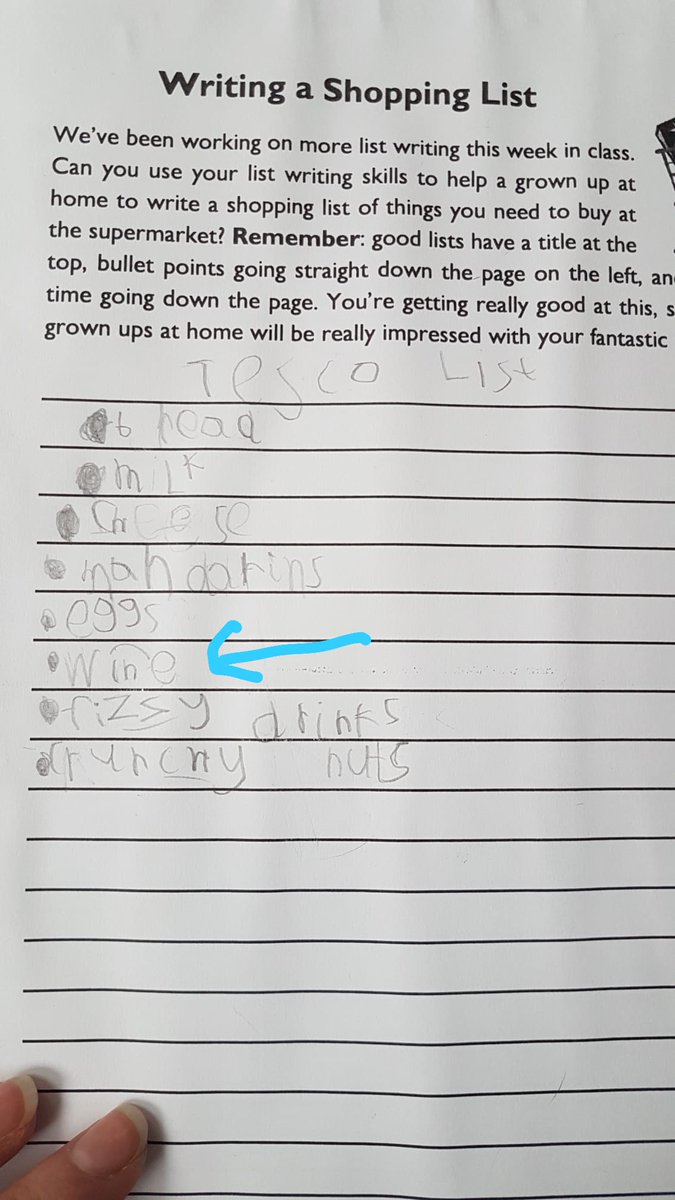 Writing a Shopping List
We've been working on more list writing this week in class.
Can you use your list writing skills to help a grown up at
home to write a shopping list of things you need to buy at
the supermarket? Remember: good lists have a title at the
top, bullet points going straight down the page on the left, an
time going down the page. You're getting really good at this, s
grown ups at home will be really impressed with your fantastic
Tesco List
• bread
• milk
• cheese
• mandarins
• eggs
• wine
• fizzy drinks
• crunchy nuts